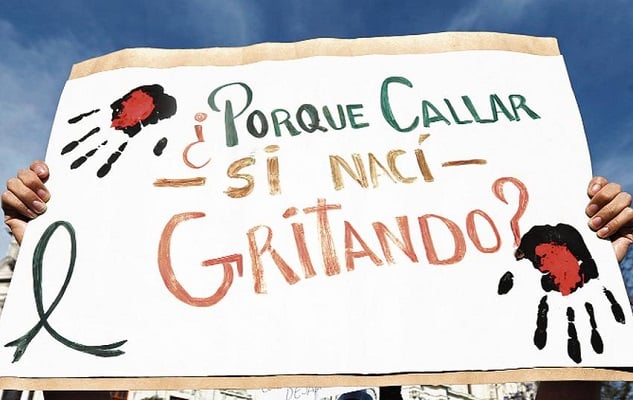 ¿PORQUE CALLAR
— SI NACÍ —
GRITANDO?